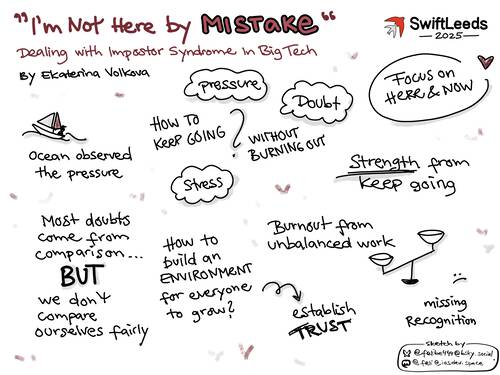 "I'm Not Here by MISTAKE"
Dealing with Impostor Syndrome in Big Tech
By Ekaterina Volkova
SwiftLeeds
2025
pressure
Doubt
Stress
FOCUS ON
HERE & NOW
HOW TO
KEEP GOING
?
WITHOUT
BURNING OUT
Ocean observed
the pressure
Strength from
keep going
Most doubts
come from
comparison...
BUT
we don't
compare
ourselves fairly
HOW to
build an
ENVIRONMENT
for everyone
to grow?
establish
TRUST
Burnout from
unbalanced work
missing
Recognition
sketch by